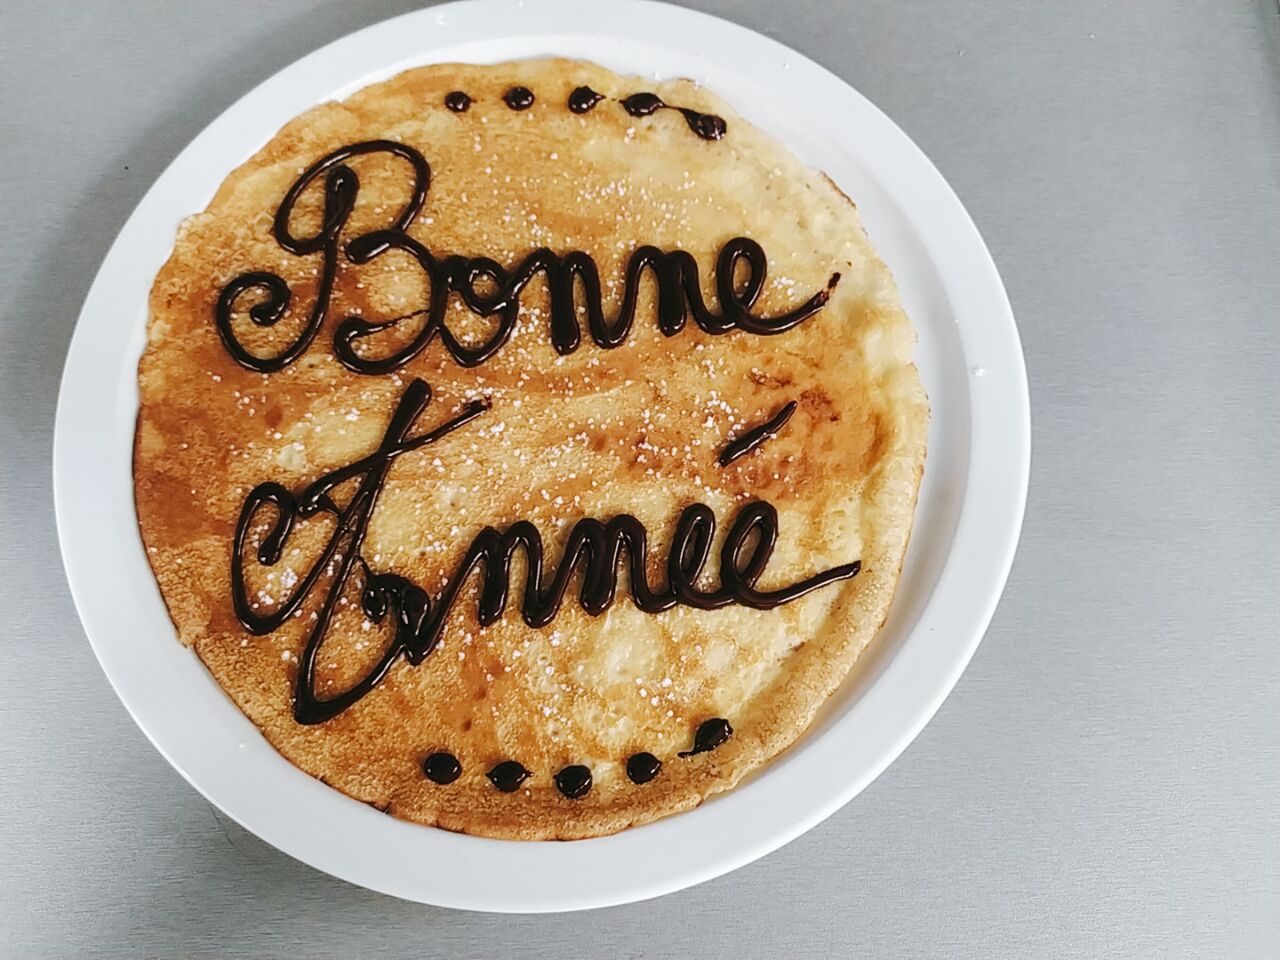 Bonne
Année